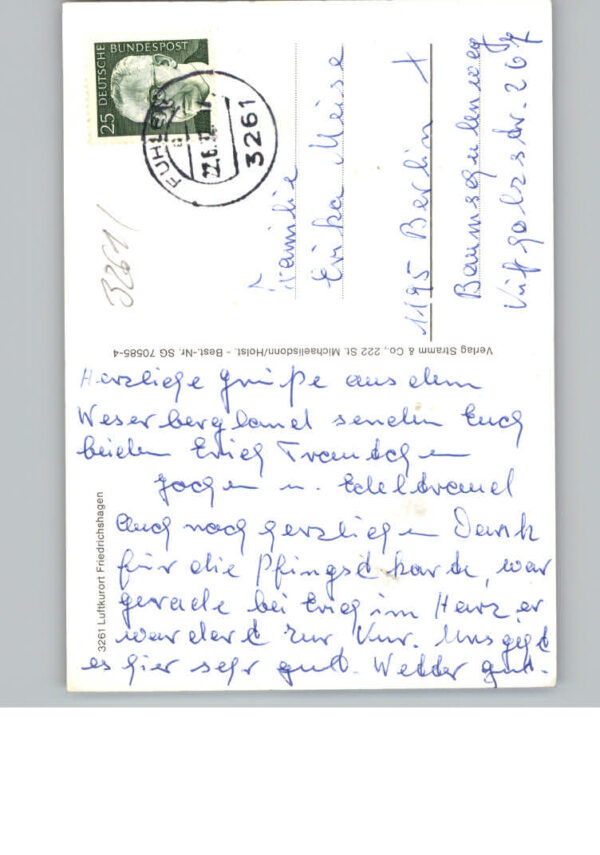 25
DEUTSCHE BUNDESPOST
FUHLEN
22.6.
3261
3261/
Familie
Erika Meise
1195 Berlin
Baumschulenweg
Verlag Stramm & Co., 222 St. Michaelisdonn/Holst. - Best.-Nr. SG 70585-4
3261 Luftkurort Friedrichshagen
Herzliche Grüße aus dem
Weserbergland senden Euch
beiden Erich Trautchen
Jochen u. Edeltraud
Auch noch herzlichen Dank
für die Pfingstkarte, war
gerade bei Erich im Harz, er
war dort zur Kur. Uns geht
es hier sehr gut. Wetter gut.